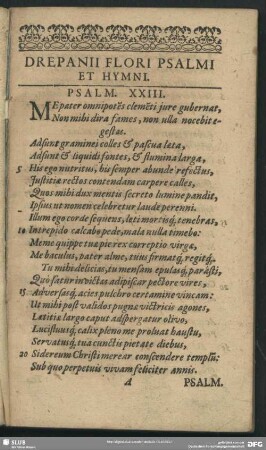 DREPANII FLORI PSALMI
ET HYMNI.
PSALM. XXIII.
ME pater omnipotẽs clemẽti jure gubernat,
Non mihi dira fames, non ulla nocebit e-
gestas.
Adsunt graminei colles & pascua læta,
Adsunt & liquidi fontes, & flumina larga,
5 His ego nutritus, his semper abunde refectus,
Justitiæ rectos contendam carpere calles,
Quos mihi dux mentis secreto lumine pandit,
Ipsius ut nomen celebretur laude perenni.
Illum ego corde sequens, leti mortisq́; tenebras,
10 Intrepido calcabo pede, mala nulla timebo:
Me munc quippe tua pie rex correptio virgæ,
Me baculus, pater alme, tuus firmatq́; regitq́;
Tu mihi delicias, tu mensam epulasq́; parâsti,
Quo satur invictas adipiscar pectore vires,
15 Adversasq́; acies pulchro certamine vincam:
Ut mihi post validos pugnæ victricis agones,
Lætitiæ largo caput adspergatur olivo,
Lucifluusq́; calix pleno me proluat haustu,
Servatusq́; tua cunctis pietate diebus,
20 Sidereum Christi merear conscendere templũ:
Sub quo perpetuis vivam feliciter annis.
A PSALM.
SLUB